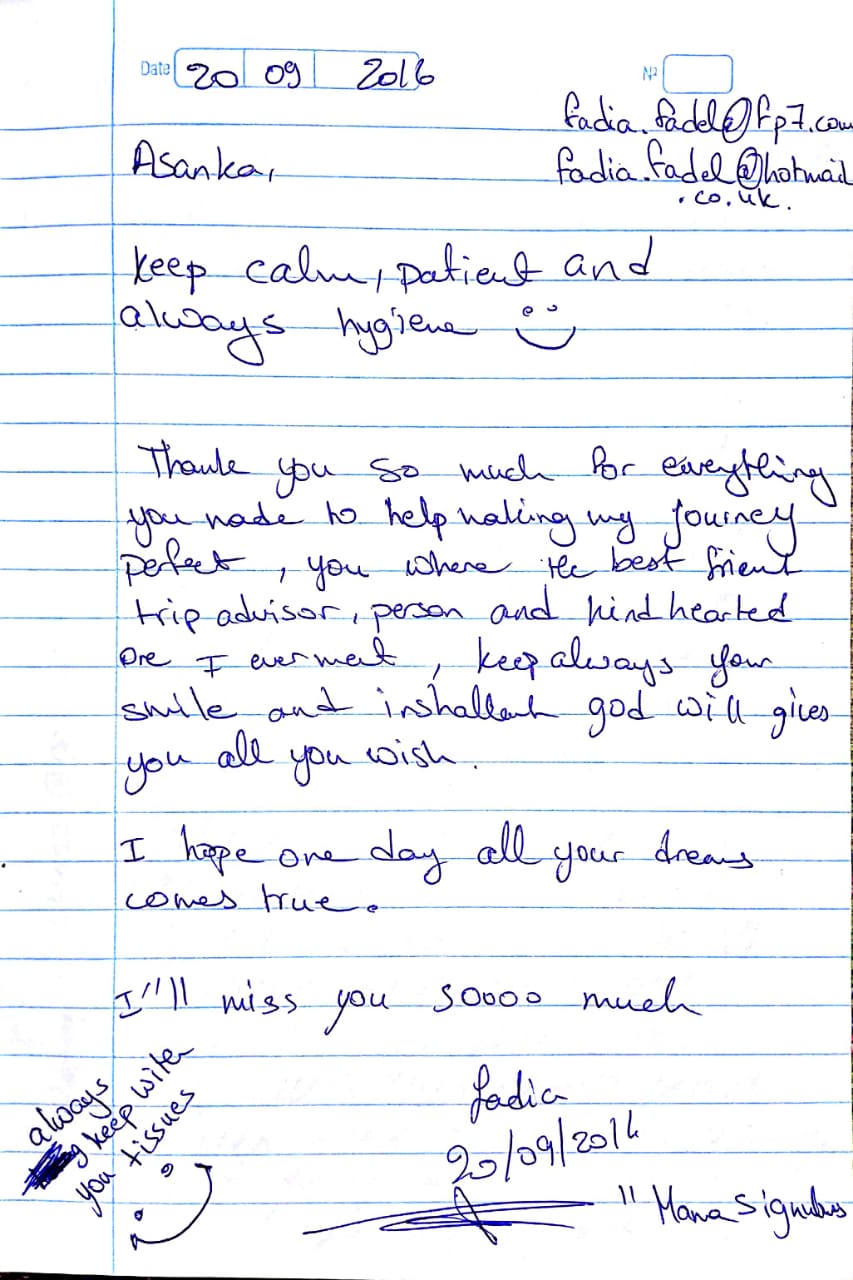 Date 20 09 2016
Nº
fadia.fadel@fp7.com
fadia.fadel@hotmail
.co.uk.
Asanka,
keep calm, patient and
always hygiene
Thank you so much for eaverything
you made to help making my journey
perfect, you where the best frient
trip advisor, person and kind hearted
one I ever meat, keep always your
smile and inshallah god will gives
you all you wish.
I hope one day all your dreams
comes true.
I'll miss you soooo much
fadia
20/09/2016
always
keep witer
you tissues
"Mana